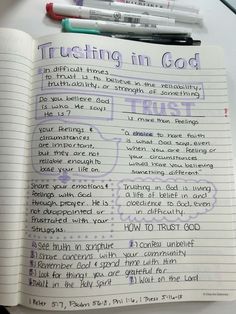 Trusting in God
In difficult times...
to trust is to believe in the reliability,
truth, ability, or strength of something
Do you believe God
is who He says
He is?
TRUST
is more than feelings
Your feelings &
circumstances
are important,
but they are not
reliable enough to
base your life on
"a choice to have faith
is what God says even
when you are feeling or
your circumstances
would have you believing
something different"
Share your emotions &
feelings with God
through prayer. He is
not disappointed or
frustrated with your
struggles.
Trusting in God is living
a life of belief in and
obedience to God even
in difficulty.
HOW TO TRUST GOD
See truth in scripture
Confess unbelief
Share concerns with your community
Remember God & spend time with Him
Look for things you are grateful for
Walk in the Holy Spirit
Wait on the Lord
1 Peter 5:7, Psalm 56:3, Phil 4:6, 1 Thess 5:16-18